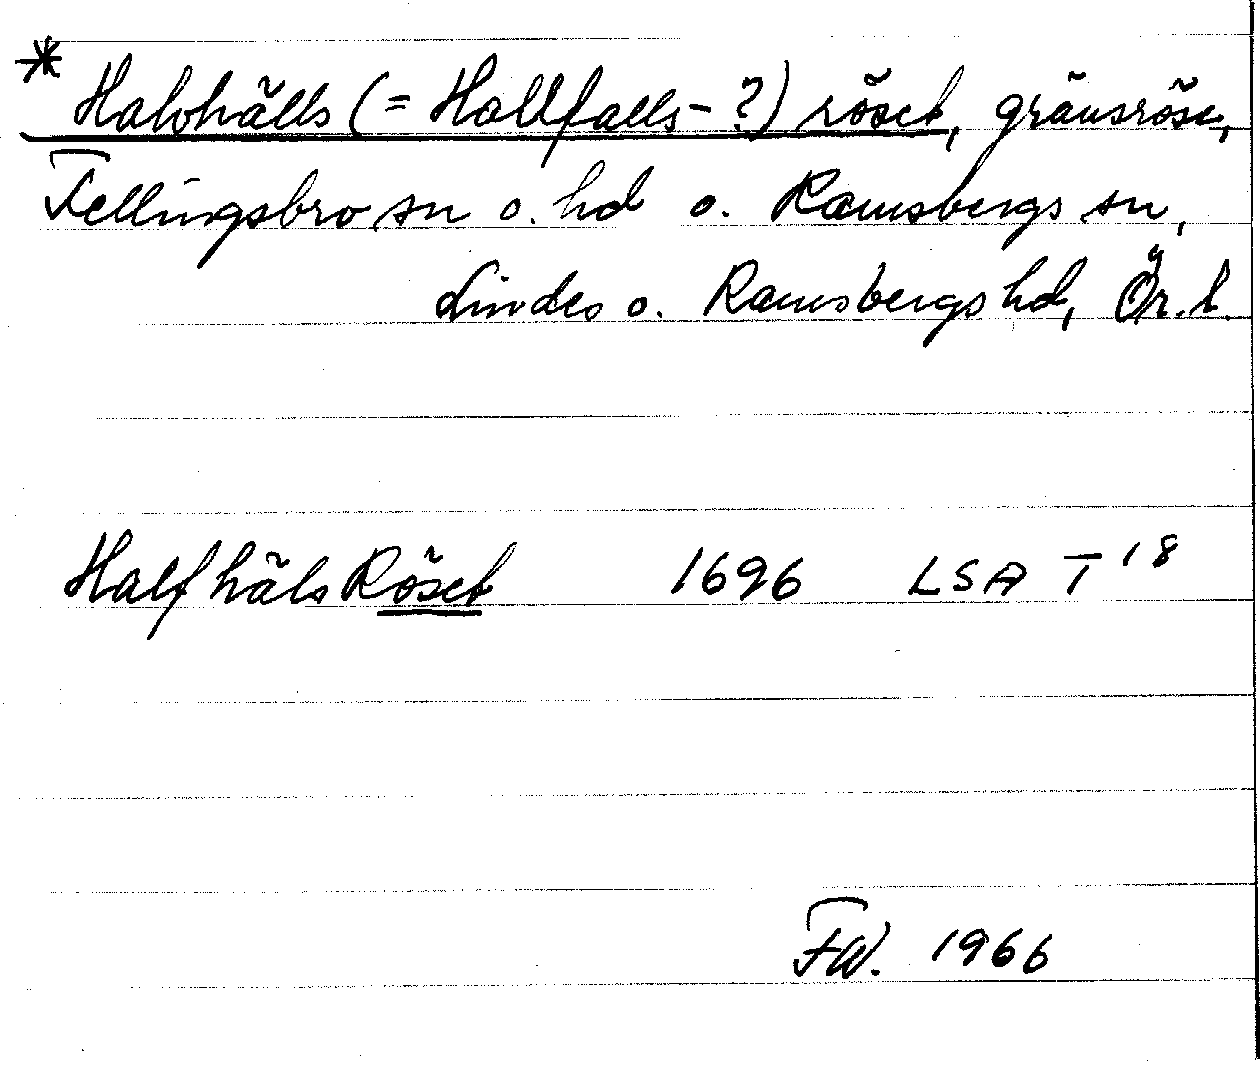 * Halvhälls (= Hallfalls- ?) röset, gränsröse,
Fellingsbro sn o. hd o. Ramsbergs sn,
Lindes o. Ramsbergs hd, Ör. l.
Halfhäls Röset 1696 LSA T 18
FW. 1966